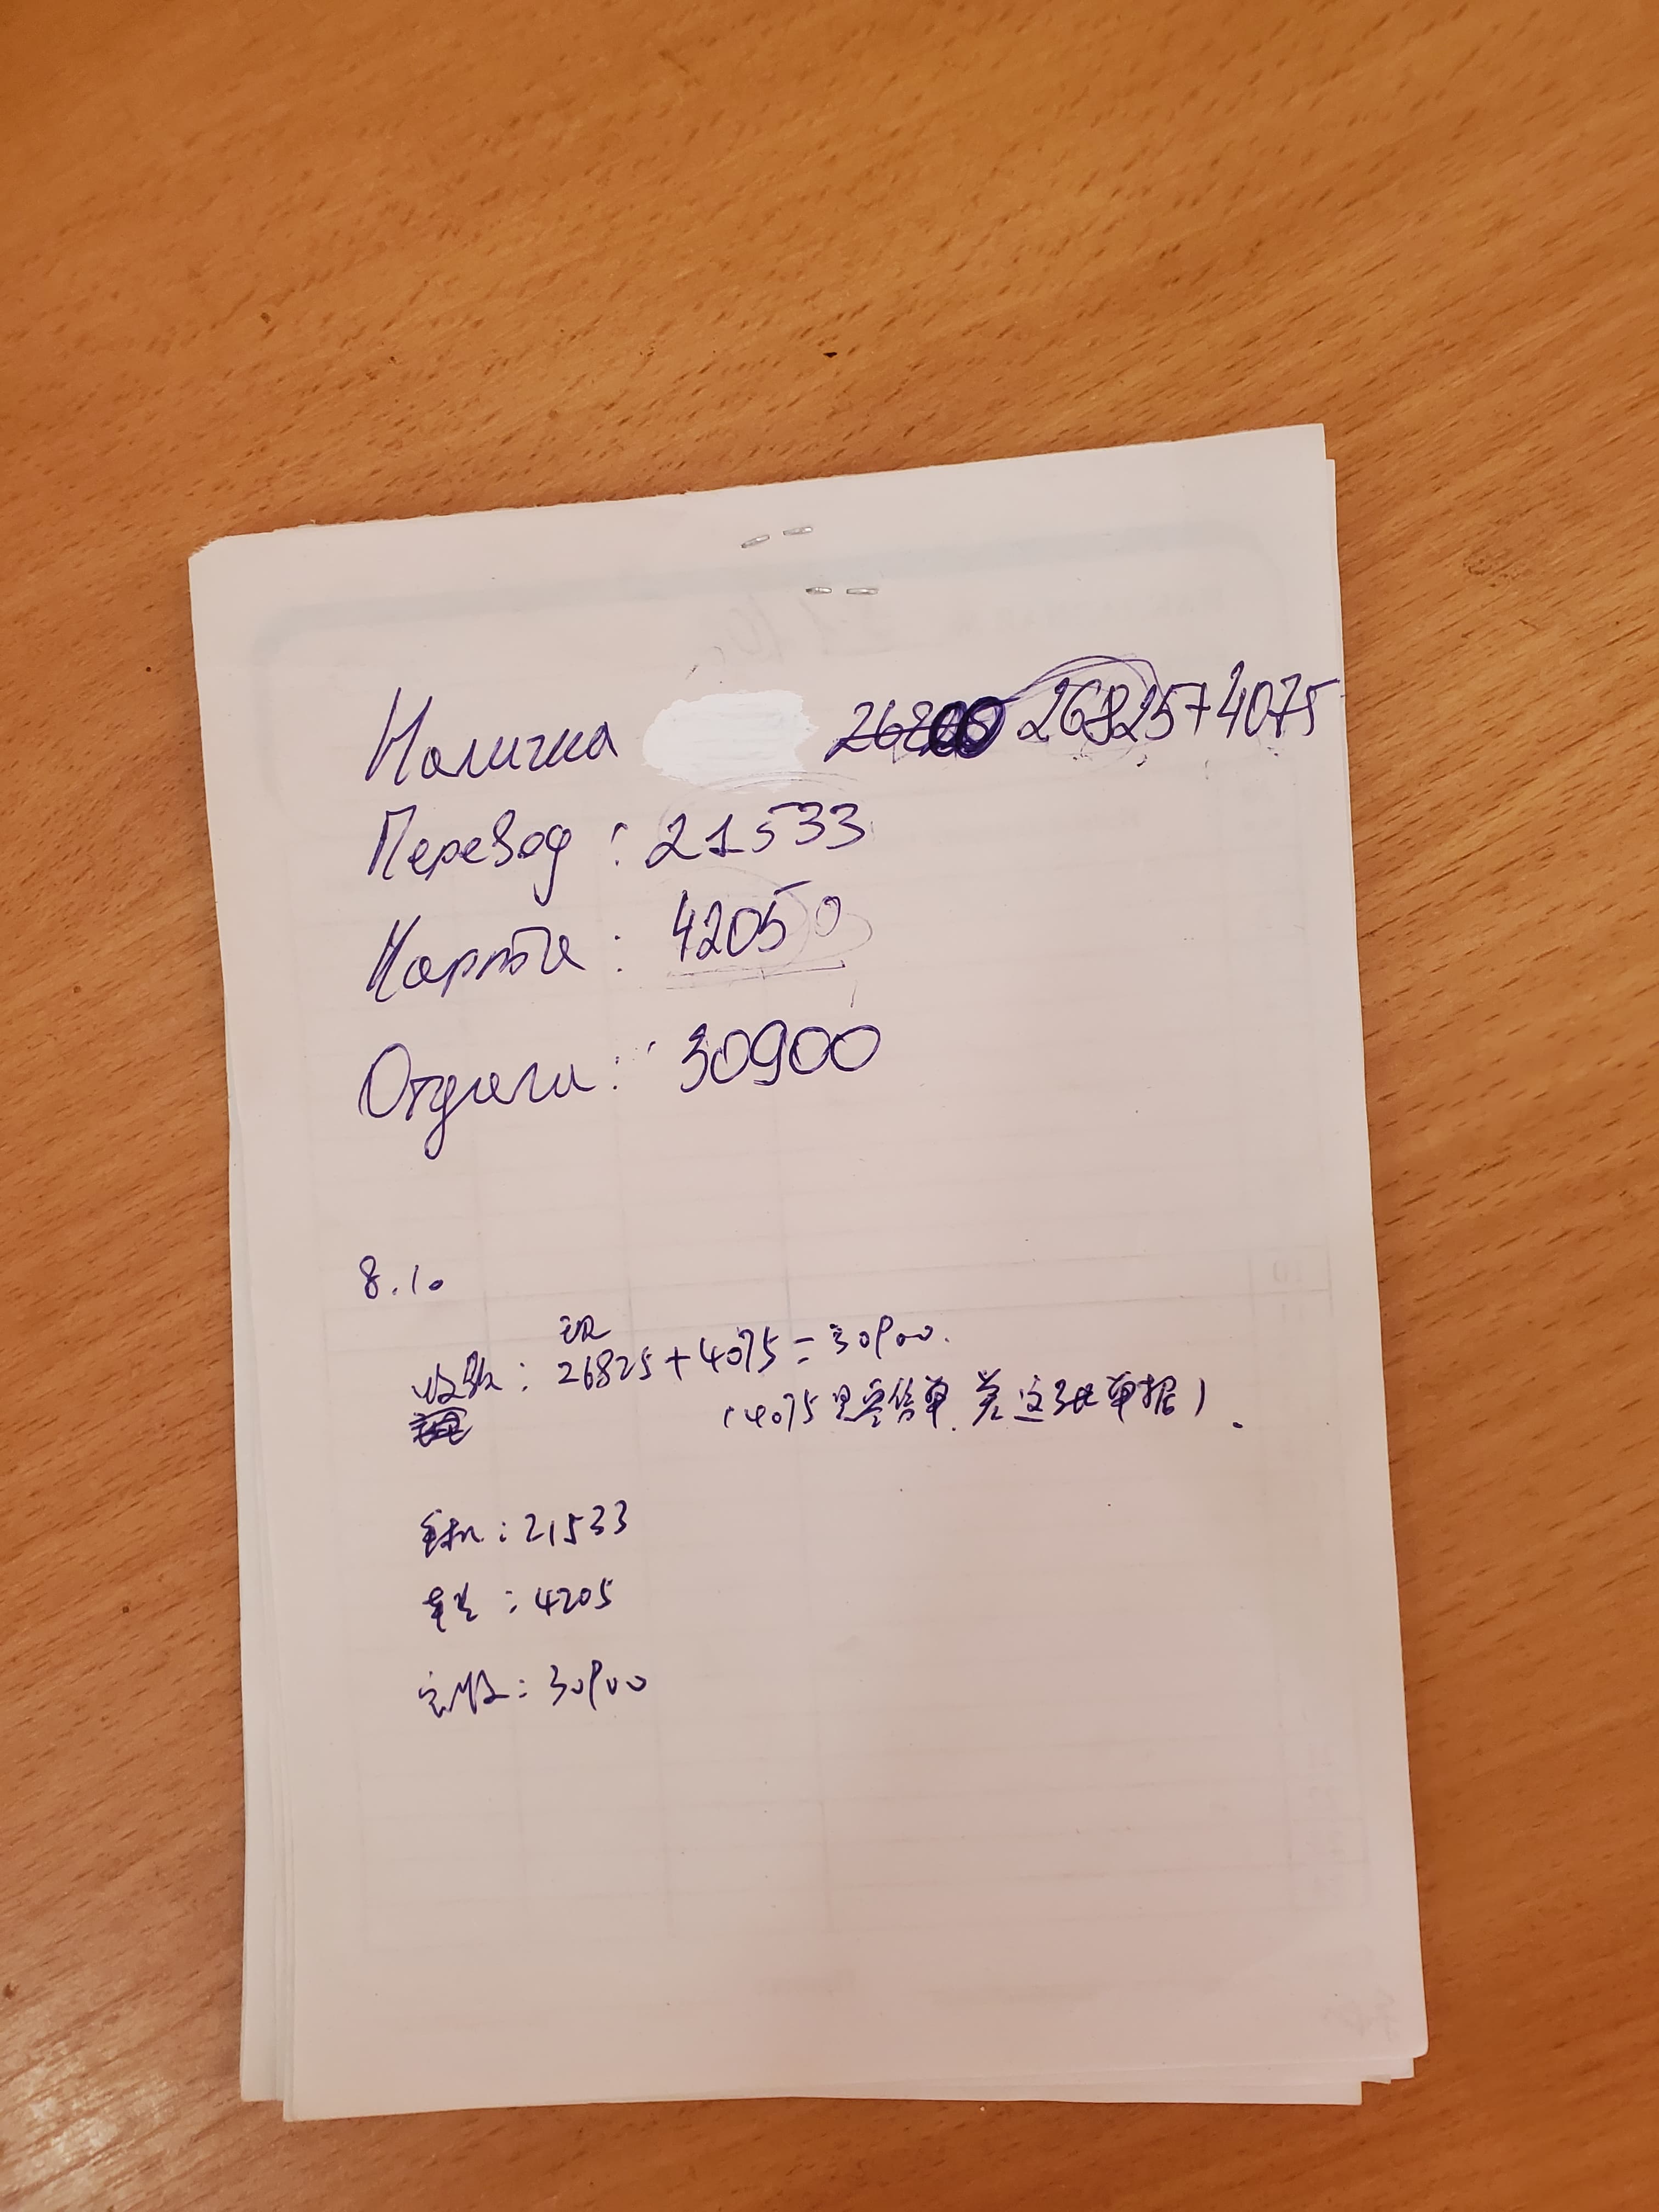 Наличка 26825+4075
Перевод: 21533
Карта: 42050
Отдали: 30900
8.10
现
收款: 26825+4075=30900.
(4075是客货单.差这张单据).
手机:21533
卡:4205
实收:30900